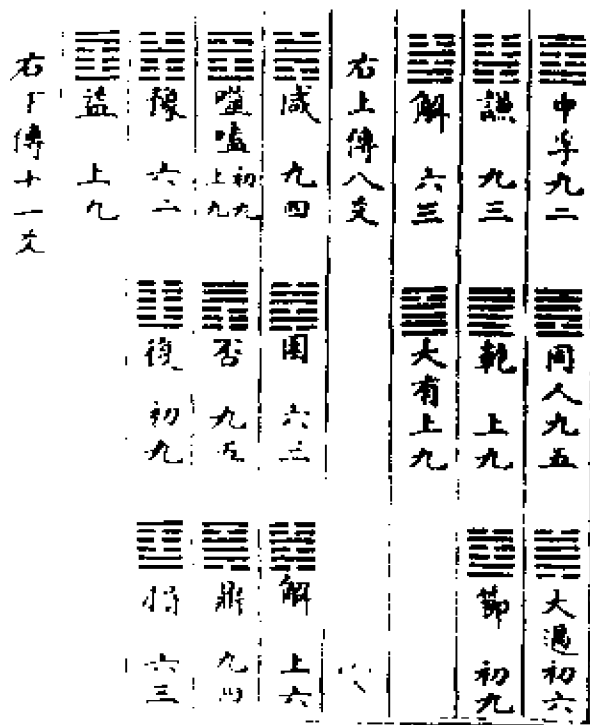 中孚九二 同人九五 大過初六
謙 九三 乾 上九 節 初九
解 六三 大有上九
右上傳八爻
咸 九四 困 六三 解 上六
噬嗑 初九 上九 否 九五 鼎 九四
豫 六二 復 初九 損 六三
益 上九
右下傳十一爻